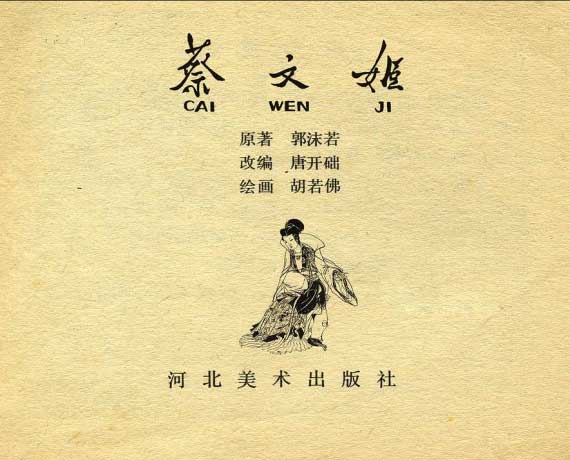 蔡文姬
CAI WEN JI
原著 郭沫若
改编 唐开础
绘画 胡若佛
河北美术出版社